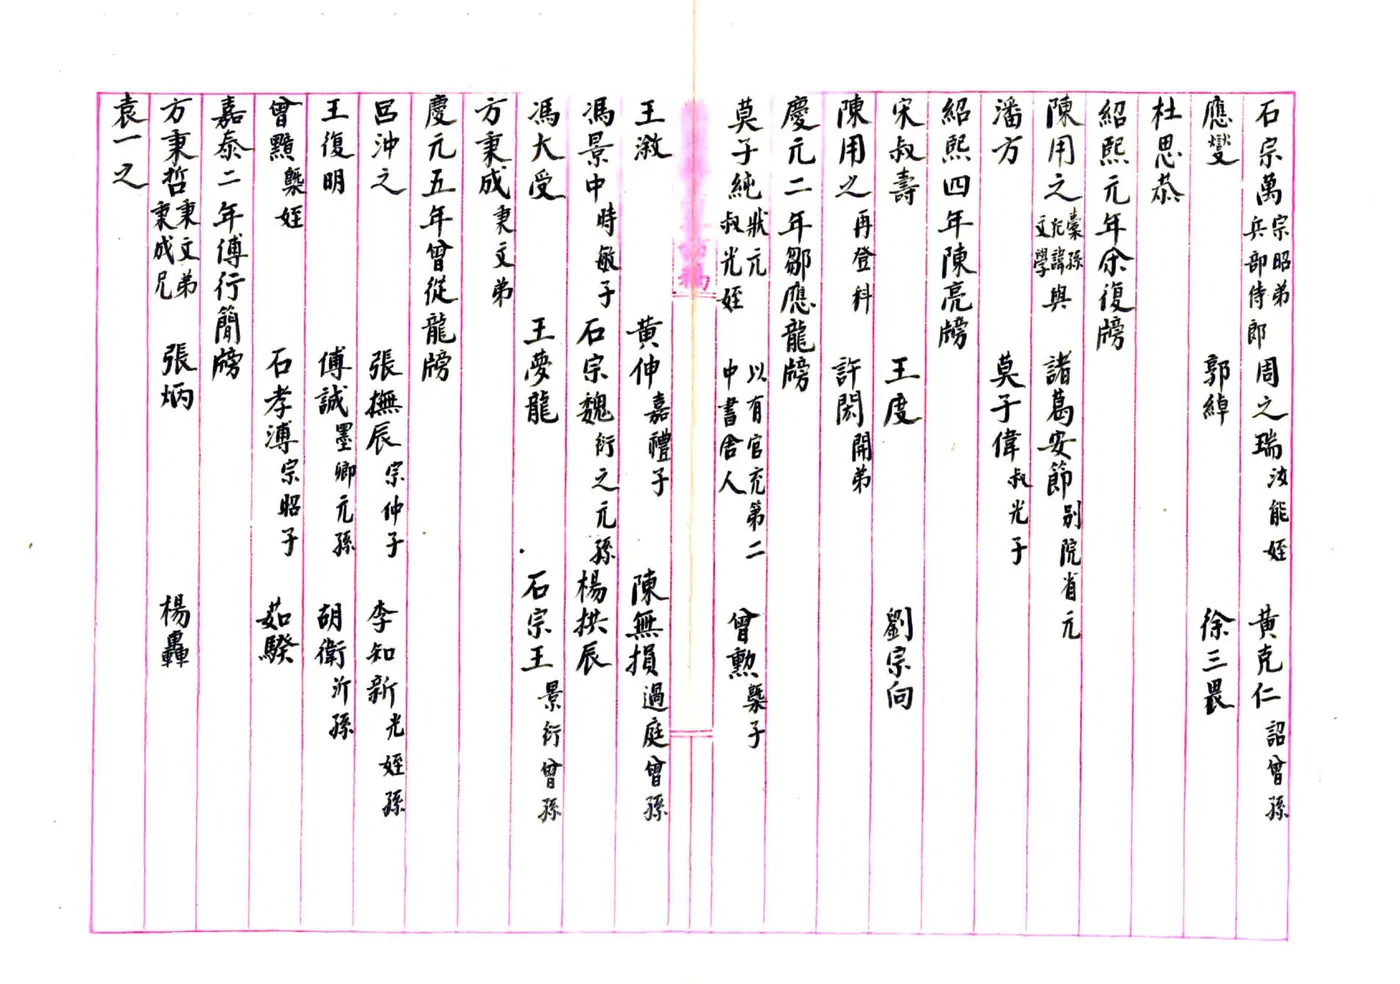 石宗萬宗昭弟兵部侍郎 周之瑞汝能姪 黄克仁詔曾孫
應㷫 郭綽 徐三畏
杜思恭
紹熙元年余復牓
陳用之橐孫 文學 諸葛安節別院省元
潘方 莫子偉叔光子
紹熙四年陳亮牓
宋叔壽 王度 劉宗向
陳用之再登科 許閎開弟
慶元二年鄒應龍牓
莫子純狀元叔光姪 以有官充第二中書舍人 曾勲槩子
王澂 黄伸嘉禮子 陳無損過庭曾孫
馮景中時敏子 石宗魏衍之元孫 楊拱辰
馮大受 王夢龍 石宗王景衍曾孫
方秉成秉文弟
慶元五年曾從龍牓
呂沖之 張撫辰宗仲子 李知新光姪孫
王復明 傅誠墨卿元孫 胡衛沂孫
曾黯槩姪 石孝溥宗昭子 茹騤
嘉泰二年傅行簡牓
方秉哲秉文弟秉成兄 張炳 楊轟
袁一之